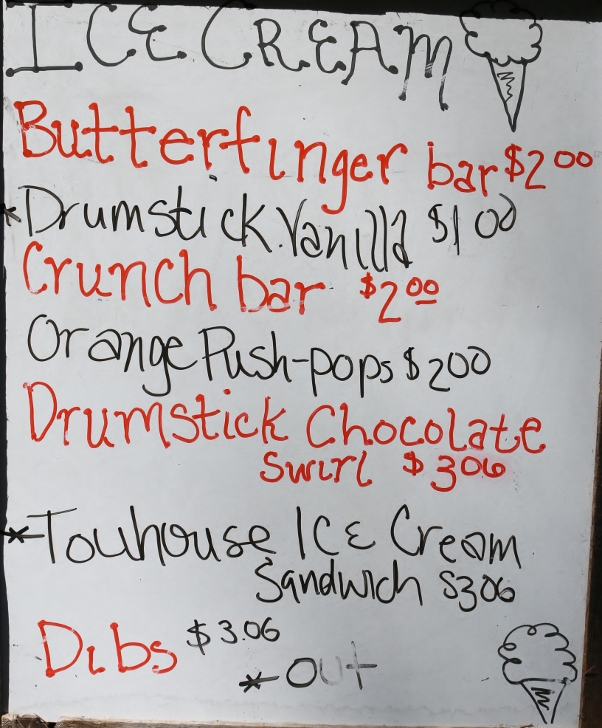 ICE CREAM
Butterfinger bar $2 00
* Drumstick. Vanilla $1 00
Crunch bar $2 00
Orange Push-pops $200
Drumstick Chocolate
Swirl $306
* Touhouse Ice Cream
Sandwich $306
Dibs $3.06
* out